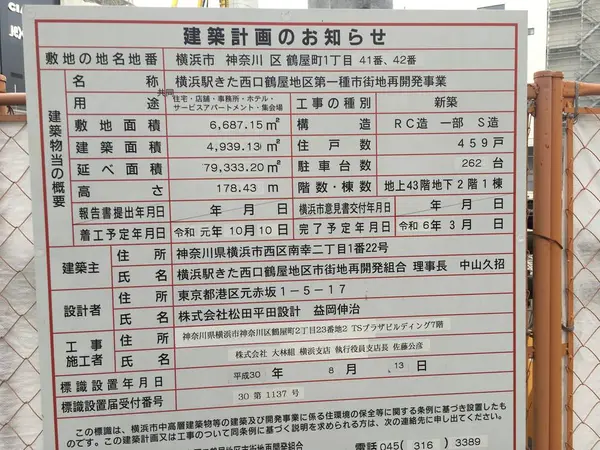 建築計画のお知らせ
敷地の地名地番 横浜市 神奈川 区 鶴屋町1丁目 41番、42番
建築物の概要
名称 横浜駅きた西口鶴屋地区第一種市街地再開発事業
用途 共同住宅・店舗・事務所・ホテル・サービスアパートメント・集会場 工事の種別 新築
敷地面積 6,687.15㎡ 構造 RC造 一部 S造
建築面積 4,939.13㎡ 住戸数 459戸
延べ面積 79,333.20㎡ 駐車台数 262台
高さ 178.43 m 階数・棟数 地上43階地下2階1棟
報告書提出年月日 年 月 日 横浜市意見書交付年月日 年 月 日
着工予定年月日 令和 元年 10月 10日 完了予定年月日 令和 6年 3月 日
建築主 住所 神奈川県横浜市西区南幸二丁目1番22号
氏名 横浜駅きた西口鶴屋地区市街地再開発組合 理事長 中山久招
設計者 住所 東京都港区元赤坂1-5-17
氏名 株式会社松田平田設計 益岡伸治
工事施工者 住所 神奈川県横浜市神奈川区鶴屋町2丁目23番地2 TSプラザビルディング7階
氏名 株式会社 大林組 横浜支店 執行役員支店長 佐藤公彦
標識設置年月日 平成30 年 8 月 13 日
標識設置届受付番号 30 第 1137 号
この標識は、横浜市中高層建築物等の建築及び開発事業に係る住環境の保全等に関する条例に基づき設置したものです。この建築計画又は工事について同条例に基づく説明を求められる方は、次の連絡先に申し出てください。
電話 045( 316 )3389